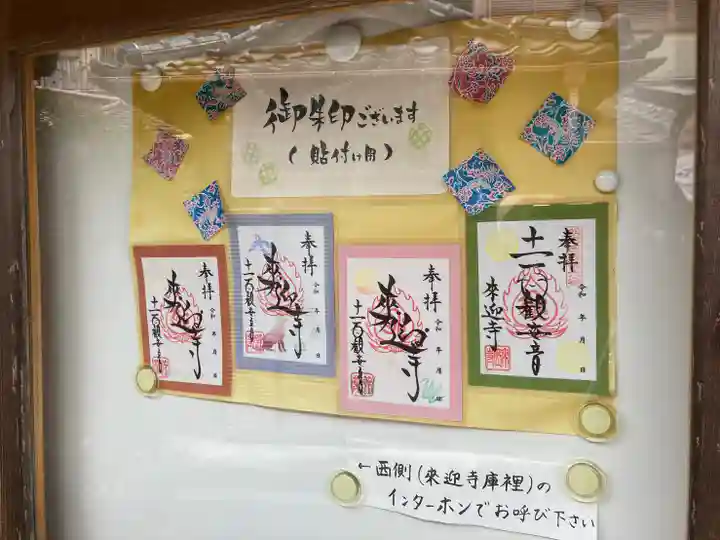 御朱印ございます
(貼付け用)
奉拝
來迎寺
十一面観世音
令和 年 月 日
奉拝
來迎寺
十一面観世音
令和 年 月 日
奉拝
來迎寺
十一面観世音
令和 年 月 日
奉拝
十一面観世音
來迎寺
令和 年 月 日
←西側(來迎寺庫裡)の
インターホンでお呼び下さい